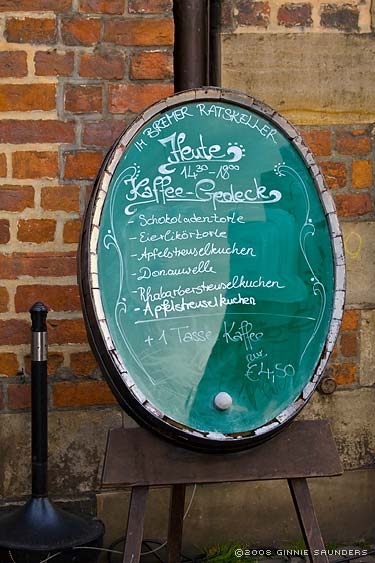 IM BREMER RATSKELLER
Heute
14³⁰-18⁰⁰
Kaffee-Gedeck
- Schokoladentorte
- Eierlikörtorte
- Apfelstreuselkuchen
- Donauwelle
- Rhabarberstreuselkuchen
- Apfelstreuselkuchen
+ 1 Tasse Kaffee
nur
€4,50
©2008 GINNIE SAUNDERS